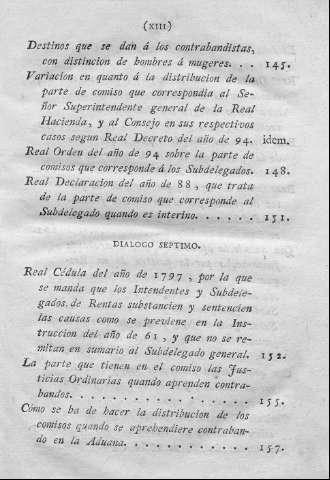 (XIII)
Destinos que se dan á los contrabandistas,
con distincion de hombres á mugeres. . . 145.
Variacion en quanto á la distribucion de la
parte de comiso que correspondia al Se-
ñor Superintendente general de la Real
Hacienda, y al Consejo en sus respectivos
casos segun Real Decreto del año de 94. idem.
Real Orden del año de 94 sobre la parte de
comisos que corresponde á los Subdelegados. 148.
Real Declaracion del año de 88, que trata
de la parte de comiso que corresponde al
Subdelegado quando es interino. . . . . . . 151.
DIALOGO SEPTIMO.
Real Cédula del año de 1797, por la que
se manda que los Intendentes y Subdele-
gados de Rentas substancien y sentencien
las causas como se previene en la Ins-
truccion del año de 61, y que no se re-
mitan en sumario al Subdelegado general. 152.
La parte que tienen en el comiso las Jus-
ticias Ordinarias quando aprenden contra-
bandos. . . . . . . . . . . . . . . . . . 155.
Cómo se ha de hacer la distribucion de los
comisos quando se aprehendiere contraban-
do en la Aduana. . . . . . . . . . . . . 157.